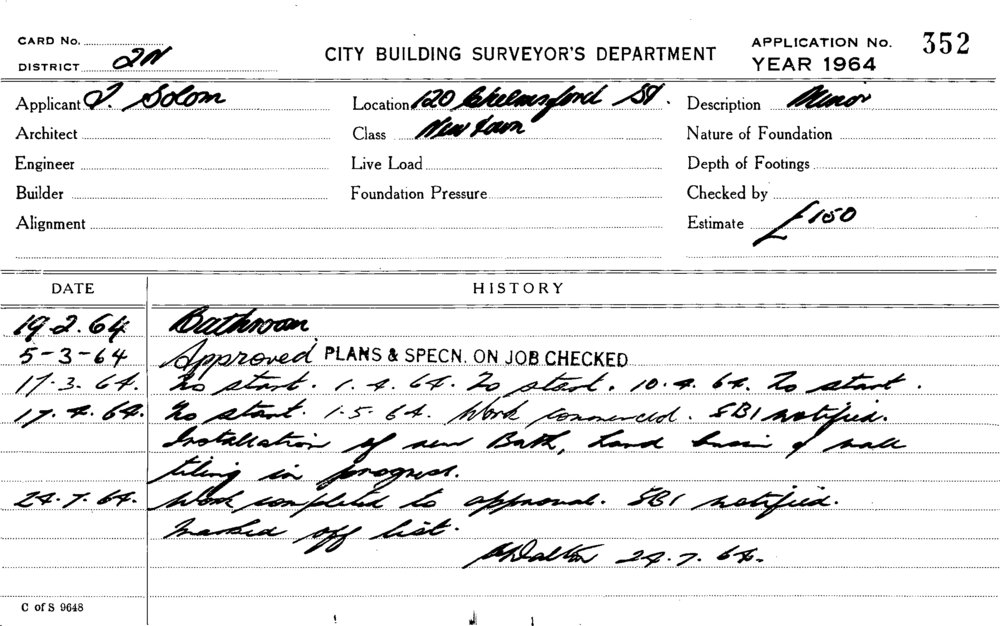 CARD No.
DISTRICT 2N
CITY BUILDING SURVEYOR'S DEPARTMENT
APPLICATION No. 352
YEAR 1964
Applicant J. Solom
Location 120 Chelmsford St.
Description Minor
Architect
Class Newtown
Nature of Foundation
Engineer
Live Load
Depth of Footings
Builder
Foundation Pressure
Checked by
Alignment
Estimate £150
DATE HISTORY
19-2.64 Bathroom
5-3-64 Approved PLANS & SPECN. ON JOB CHECKED
17.3.64. No start. 1.4.64. No start. 10.4.64. No start.
17.4.64. No start. 1-5.64. Work commenced. SBI notified.
Installation of new Bath, hand basin & wall
tiling in progress.
24.7.64. Work completed to approval. SBI notified.
Marked off list.
Dalton 24.7.64.
C of S 9648